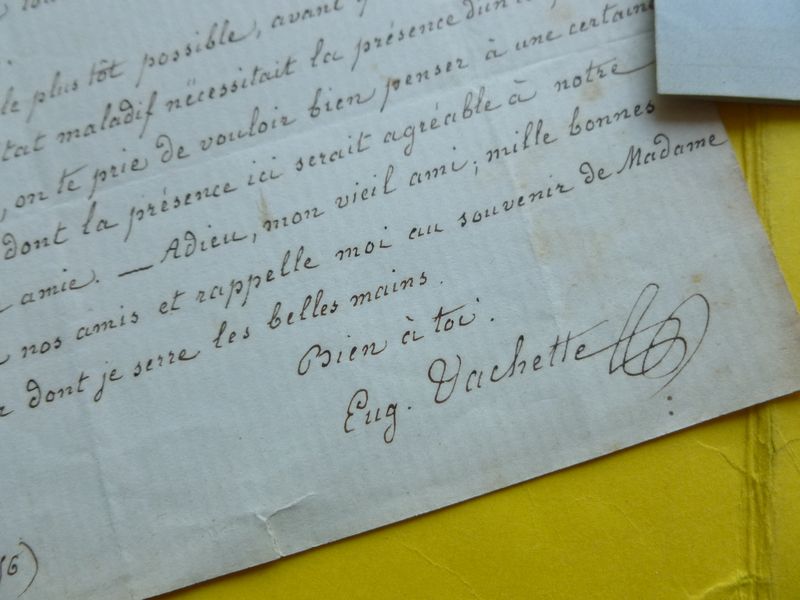 le plus tôt possible, avant
maladif nécessitait la présence d'un
, on te prie de vouloir bien penser à une certaine
dont la présence ici serait agréable à notre
amie. — Adieu, mon vieil ami; mille bonnes
nos amis et rappelle moi au souvenir de Madame
dont je serre les belles mains.
Bien à toi.
Eug. Vachette
6)